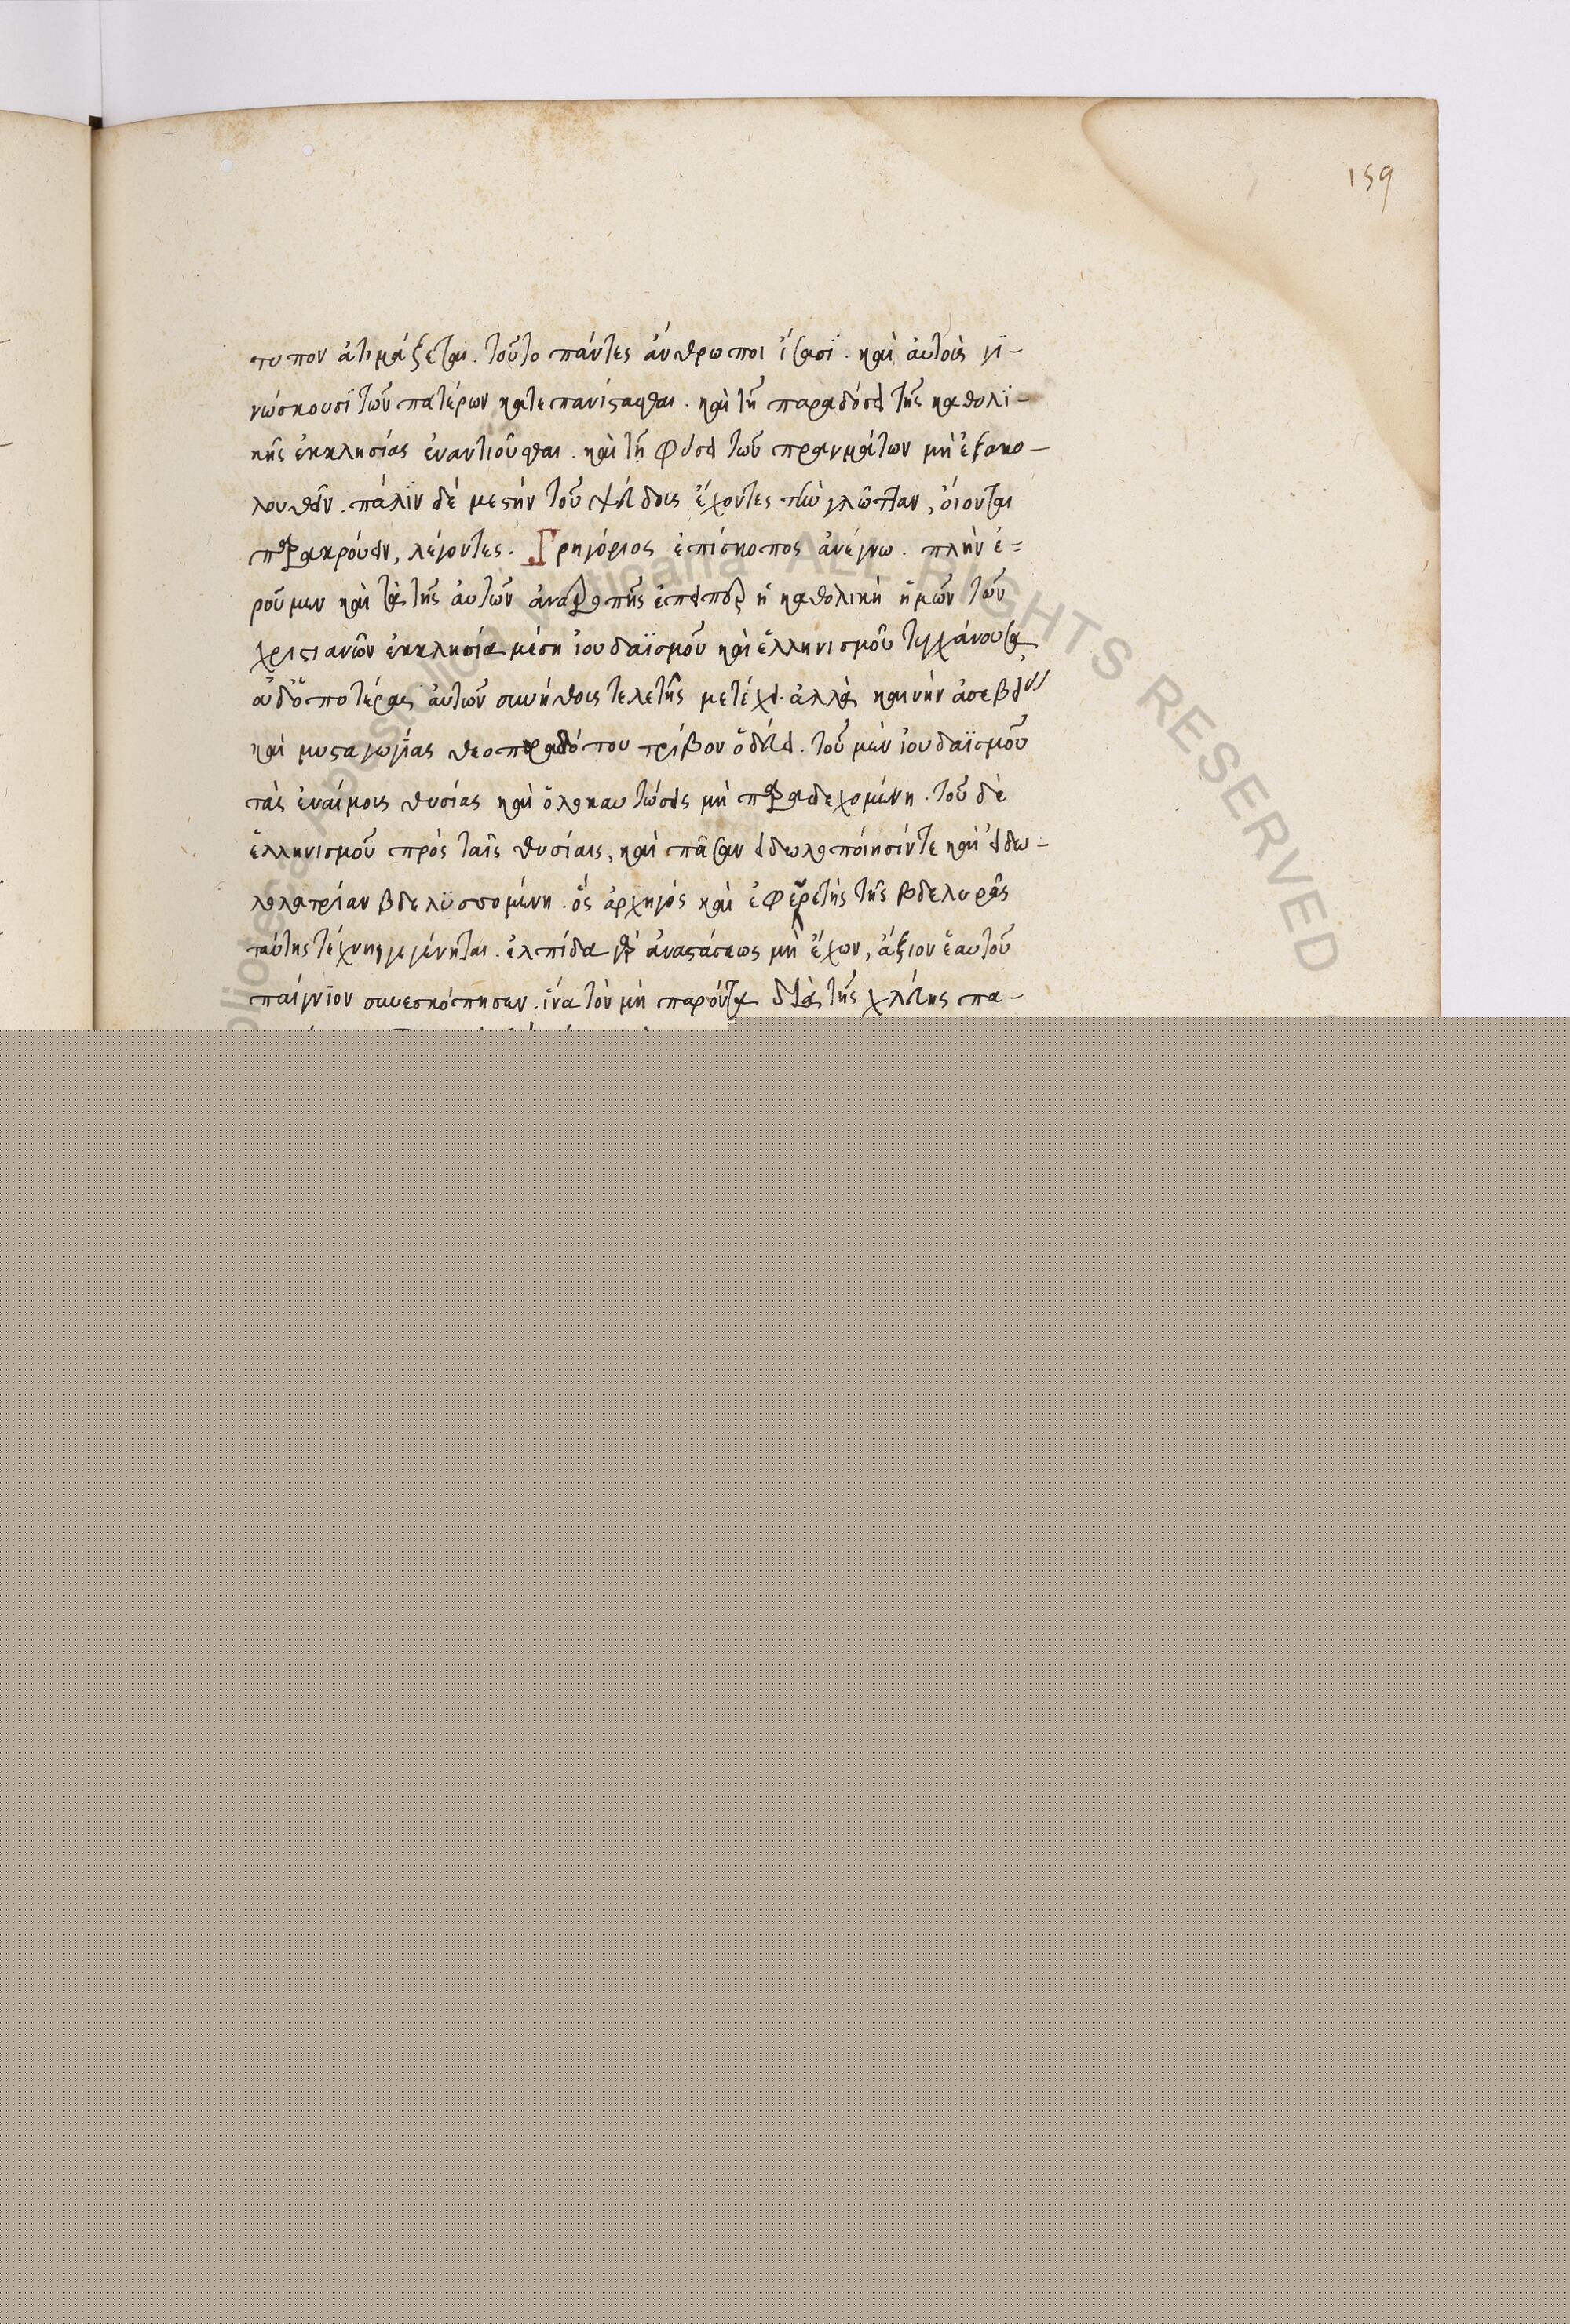 159
τυπον ἀτιμάζεται. τοῦτο πάντες ἄνθρωποι ἴσασϊ. καὶ ἀυτοὺς γϊ-
νώσκουσϊ τῶν πατέρων κατεπανίστασθαι. καὶ τῆ παραδόσει τῆς καθολϊ-
κῆς ἐκκλησίας ἐναντιοῦσθαι. καὶ τῆ φύσει τῶν πραγμάτων μὴ ἐξακο-
λουθεῖν. πάλϊν δὲ μεστὴν τοῦ ψεύδους ἔχοντες τὴν γλῶτταν, ὄιονται
παρακρούειν, λέγοντες. Γρηγόριος ἐπίσκοπος ἀνέγνω. πλὴν ἐ=
ροῦμεν καὶ τὰ τῆς ἀυτῶν ἀνατροπῆς ἐπειπερ ἡ καθολικὴ ἡμῶν τῶν
χριστιανῶν ἐκκλησία μέση ἰουδαϊσμοῦ καὶ ἑλληνισμοῦ τυγχάνουσα
οὐδ' ὁποτέρας ἀυτῶν συνήθους τελετῆς μετέχει. ἀλλὰ καινὴν ἀσεβεί
καὶ μυσταγωγΐας θεοπαραδότου τρίβον ὁδεύει. τοῦ μὲν ἰουδαϊσμοῦ
τὰς ἐναίμους θυσίας καὶ ὁλοκαυτώσεις μὴ παραδεχομένη. τοῦ δὲ
ἑλληνισμοῦ πρὸς ταῖς θυσίαις, καὶ πᾶσαν ειδωλοποίησίντε καὶ ἐιδω-
λολατρίαν βδελϋττομένη. ὃς ἀρχηγός καὶ ἐφευρετὴς τῆς βδελυρᾶς
ταύτης τέχνης γεγένηται. ἐλπίδα γὰρ ἀναστάσεως μὴ ἔχων, ἄξιον ἑαυτοῦ
παίγνϊον συνεσκόπησεν. ἵνα τὸν μὴ παρόντα διὰ τῆς χλεύης πα-